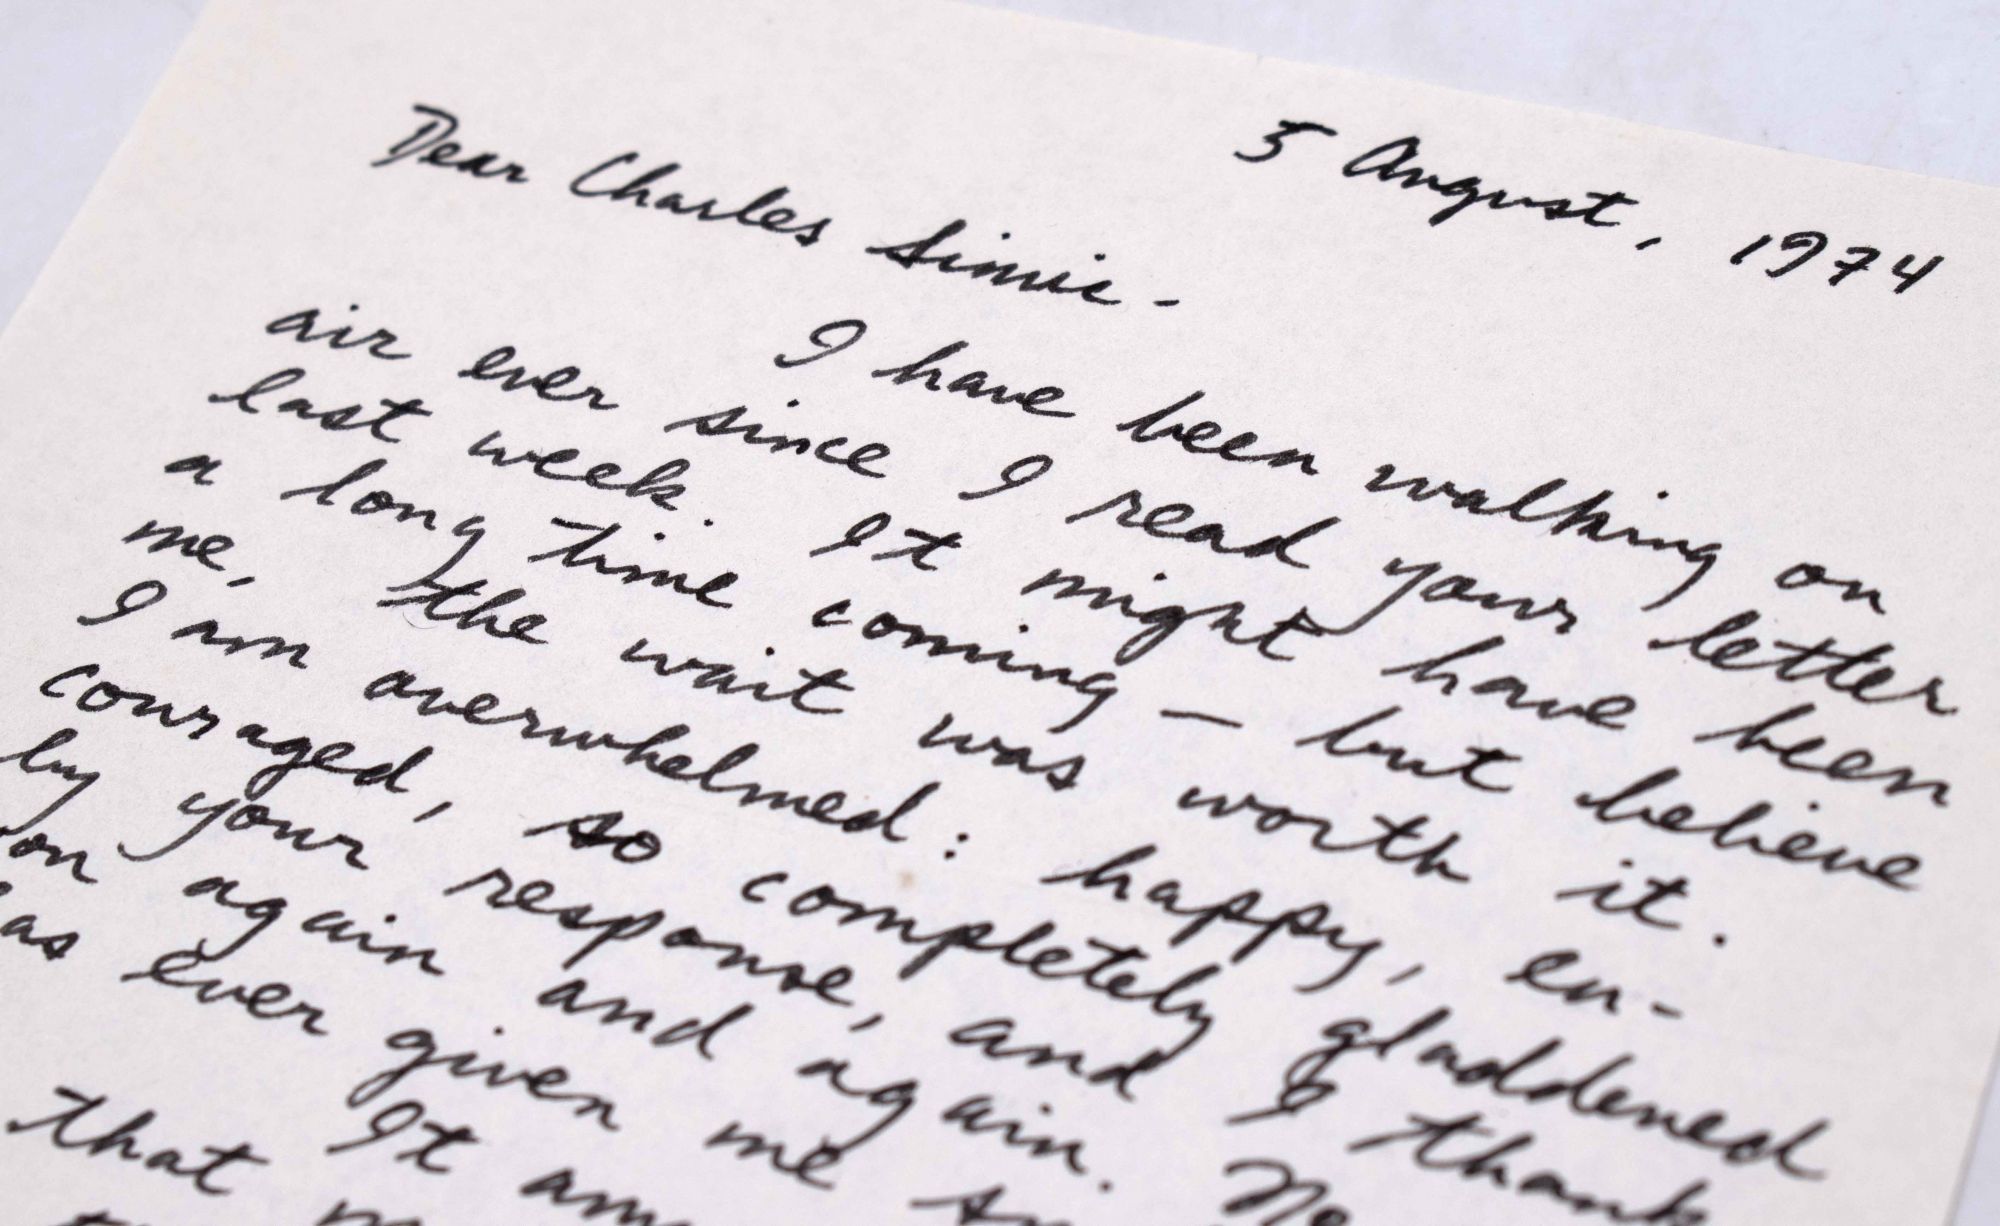 5 August, 1974
Dear Charles Simic -
I have been walking on
air ever since I read your letter
last week. It might have been
a long time coming — but believe
me, the wait was worth it.
I am overwhelmed: happy, en-
couraged, so completely gladdened
by your response, and I thank
again and again.
ever given me
It
that